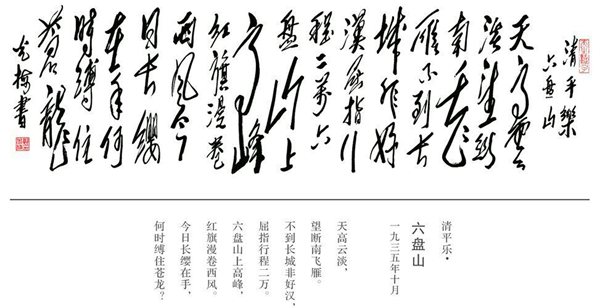 清平樂
六盘山
天高雲
淡望断
南飞
雁不到长
城非好
漢屈指行
程二萬六
盘山上
高峰
红旗漫卷
西风今
日长缨
在手何
時縛住
苍龙
清平乐·
六盘山
一九三五年十月
天高云淡，
望断南飞雁。
不到长城非好汉，
屈指行程二万。
六盘山上高峰，
红旗漫卷西风。
今日长缨在手，
何时缚住苍龙？